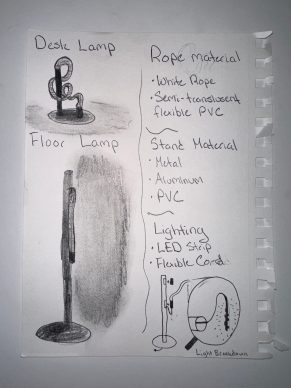 Desk Lamp
Floor Lamp
Rope material
• White Rope
• Semi-translusent
flexible PVC
Stand Material
• Metal
• Aluminum
• PVC
Lighting
• LED Strip
• Flexible Cord
Light Breakdown